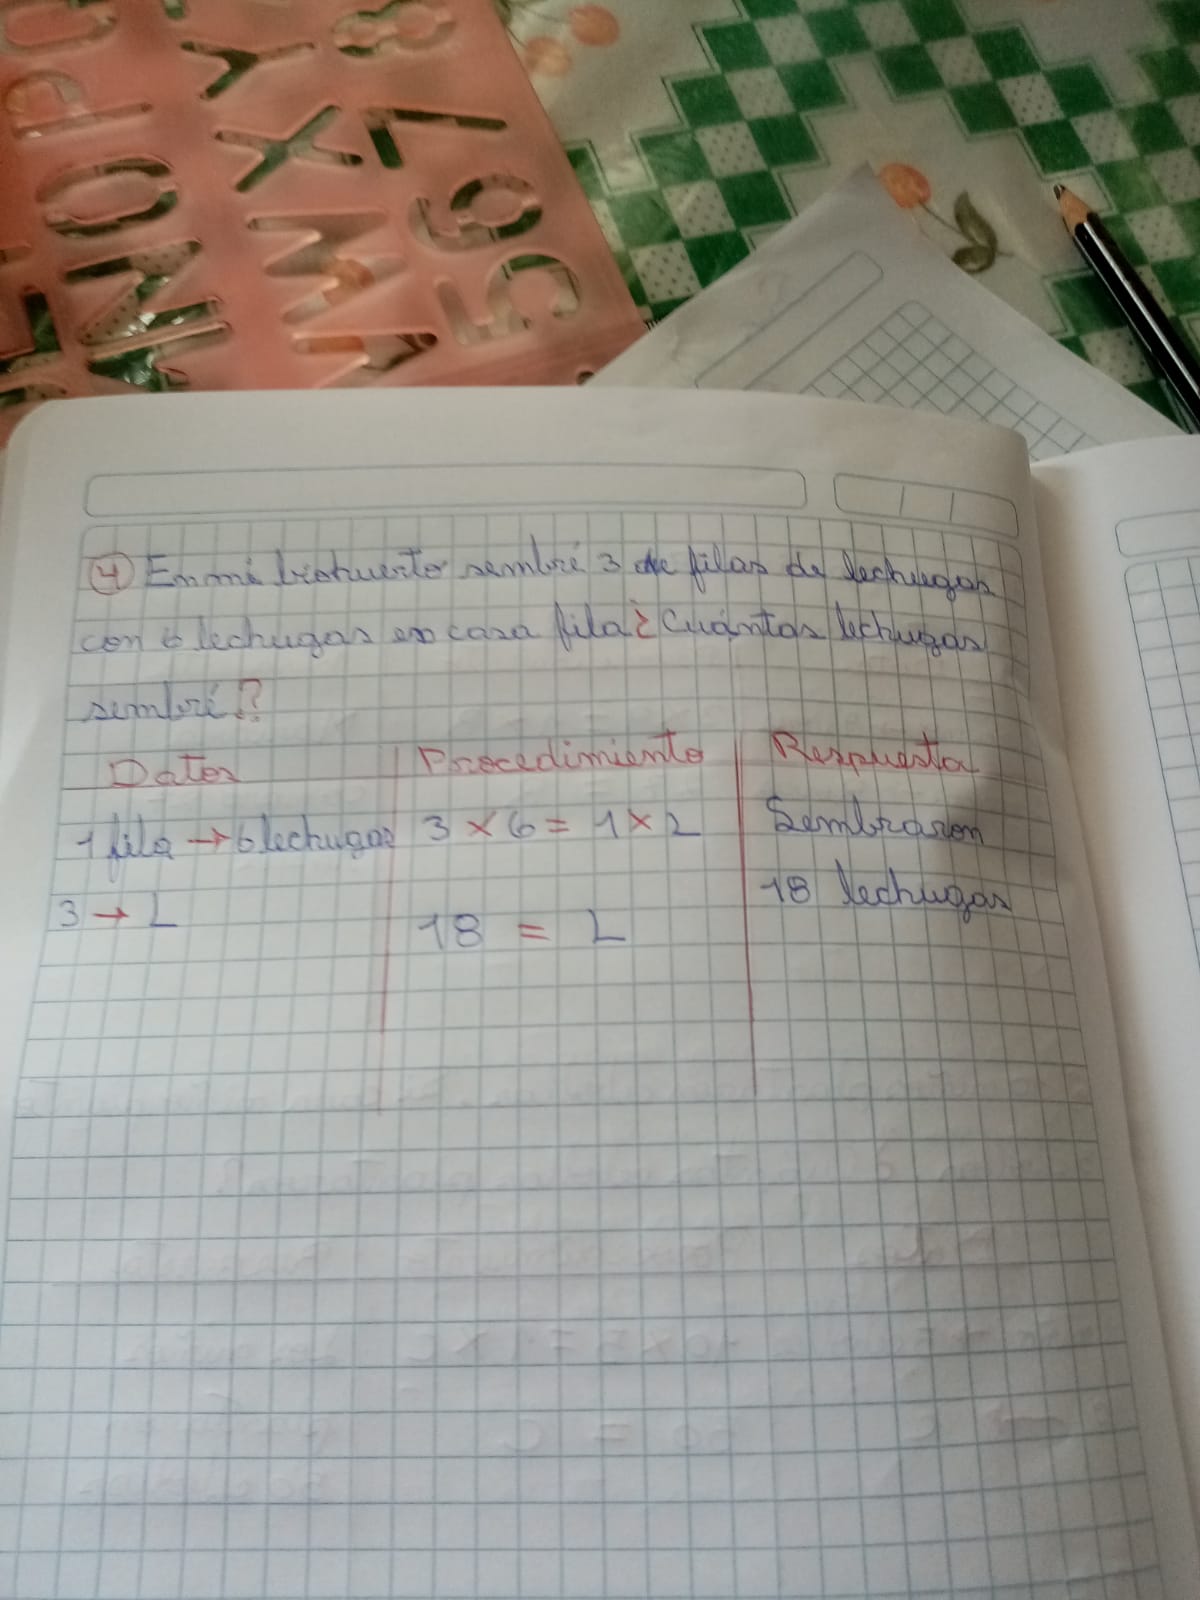 O
P Y 8
NO X 7
M W 9 6
5
4 En mi biohuerto sembré 3 de filas de lechugas
con 6 lechugas en casa fila ¿Cuántas lechugas
sembré?
Datos Procedimiento Respuesta
1 fila → 6 lechugas 3 x 6 = 1 x L Sembraron
3 → L 18 = L 18 lechugas